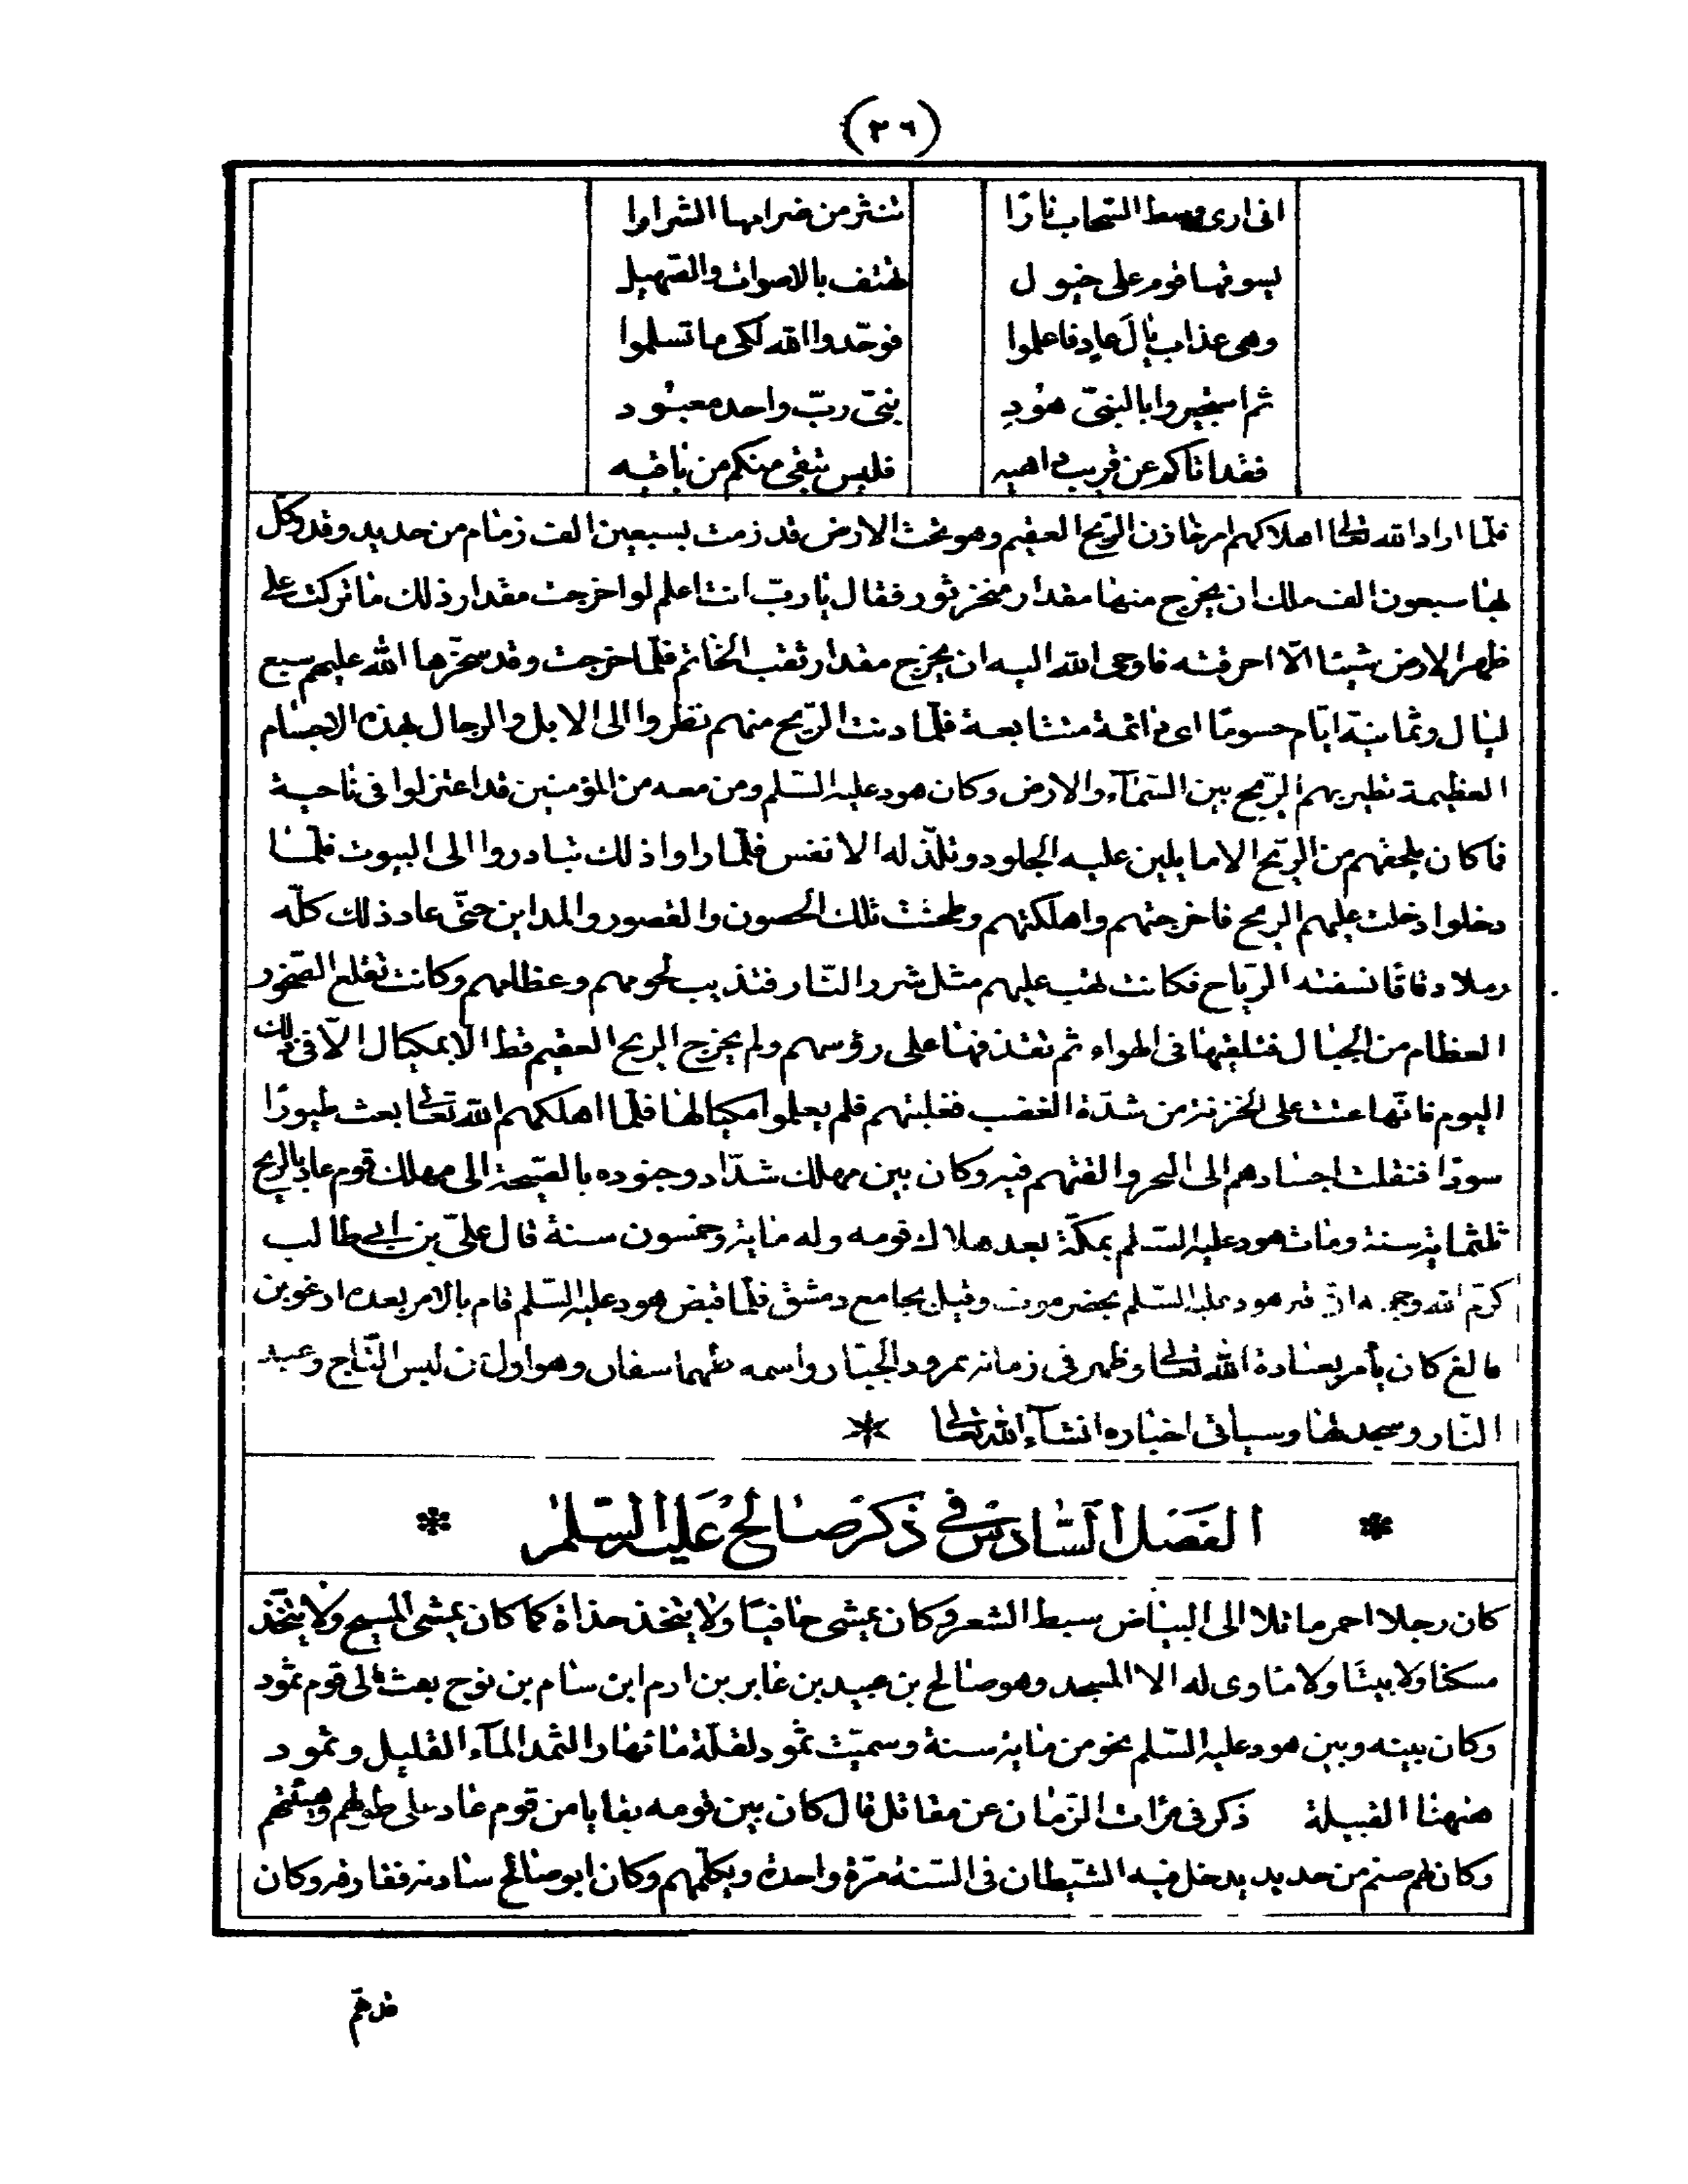 (٢٦)
انى ارى وسط السحاب نارًا تنثر من ضرامها الشرارا
يسوقها قوم على خيول تهتف بالاصوات والصهيل
وهى عذاب يالَ عادٍ فاعلموا فوحّدوا الله لكى ما تسلموا
ثم استجيروا بالنبىّ هودِ نبىّ ربّ واحد معبود
فقد اتاكم عن قريب داهيه فليس تبقى منكم من باقيه
فلمّا اراد الله تعالى اهلاكهم امر خازن الرّيح العقيم وهو تحت الارض قد زمت بسبعين الف زمام من حديد وقد وكل
بها سبعون الف ملك ان يخرج منها مقدار منخر ثور فقال يا ربّ انت اعلم لو اخرجت مقدار ذلك ما تركت على
ظهر الارض شيئا الّا احرقته فاوحى الله اليه ان يخرج مقدار ثقب الخاتم فلمّا خرجت وقد سخّرها الله عليهم سبع
ليال وثمانية ايّام حسومًا اى دائمة متتابعة فلمّا دنت الرّيح منهم نظروا الى الابل والرجال بهذه الاجسام
العظيمة تطير بهم الرّيح بين السّمآء والارض وكان هود عليه السّلم ومن معه من المؤمنين قد اعتزلوا فى ناحية
فاكان يلحقهم من الرّيح الا ما يلين عليه الجلود وتلذّ له الانفس فلمّا راوا ذلك تبادروا الى البيوت فلمّا
دخلوا دخلت عليهم الريح فاخرجتهم واهلكتهم وطحنت تلك الحصون والقصور والمداين حتّى عاد ذلك كلّه
رملا دقاقًا نسفته الرّياح فكانت تهب عليهم مثل شرر النّار فتذيب لحومهم وعظامهم وكانت تقلع الصّخور
العظام من الجبال فتلقيها فى الهواء ثم تقذفها على رؤسهم ولم يخرج الريح العقيم قط الّا بمكيال الّا فى ذلك
اليوم فانّها عتت على الخزنة من شدّة الغضب فغلبتهم فلم يعلموا مكيالها فلمّا اهلكهم الله تعالى بعث طيورًا
سودًا فنقلت اجسادهم الى البحر والقتهم فيه وكان بين مهلك شدّاد وجنوده بالصّيحة الى مهلك قوم عاد بالريح
ثلثماية سنة ومات هود عليه السّلم بمكّة بعد هلاك قومه وله ماية وخمسون سنة قال علىّ بن ابى طالب
كرّم الله وجهه انّ قبر هود عليه السّلم بحضرموت وقيل بجامع دمشق فلمّا قبض هود عليه السّلم قام بالامر بعده ارغو بن
فالغ كان يأمر بعبادة الله تعالى وظهر فى زمانه نمرود الجبّار واسمه طهماسفان وهو اول من لبس التّاج وعبد
النّار وسجد لها وسيأتى اخباره انشآء الله تعالى *
* الفصل السّادس فى ذكر صالح عليه السّلم *
كان رجلا احمر مائلا الى البياض سبط الشعر وكان يمشى حافيًا ولا يتخذ حذاءً كما كان يمشى المسيح ولا يتّخذ
مسكنا ولا بيتًا ولا ماوى له الا المسجد وهو صالح بن عبيد بن عابر بن ارم ابن سام بن نوح بعث الى قوم ثمود
وكان بينه وبين هود عليه السّلم نحو من ماية سنة وسميّت ثمود لقلّة مائها والثمد المآء القليل وثمود
ههنا القبيلة ذكر فى مرات الزّمان عن مقاتل قال كان بين قومه بقايا من قوم عاد على طولهم وهيئتهم
وكان لهم صنم من حديد يدخل فيه الشّيطان فى السّنة مرّة واحدة ويكلّمهم وكان ابو صالح سادنه ففارقه وكان